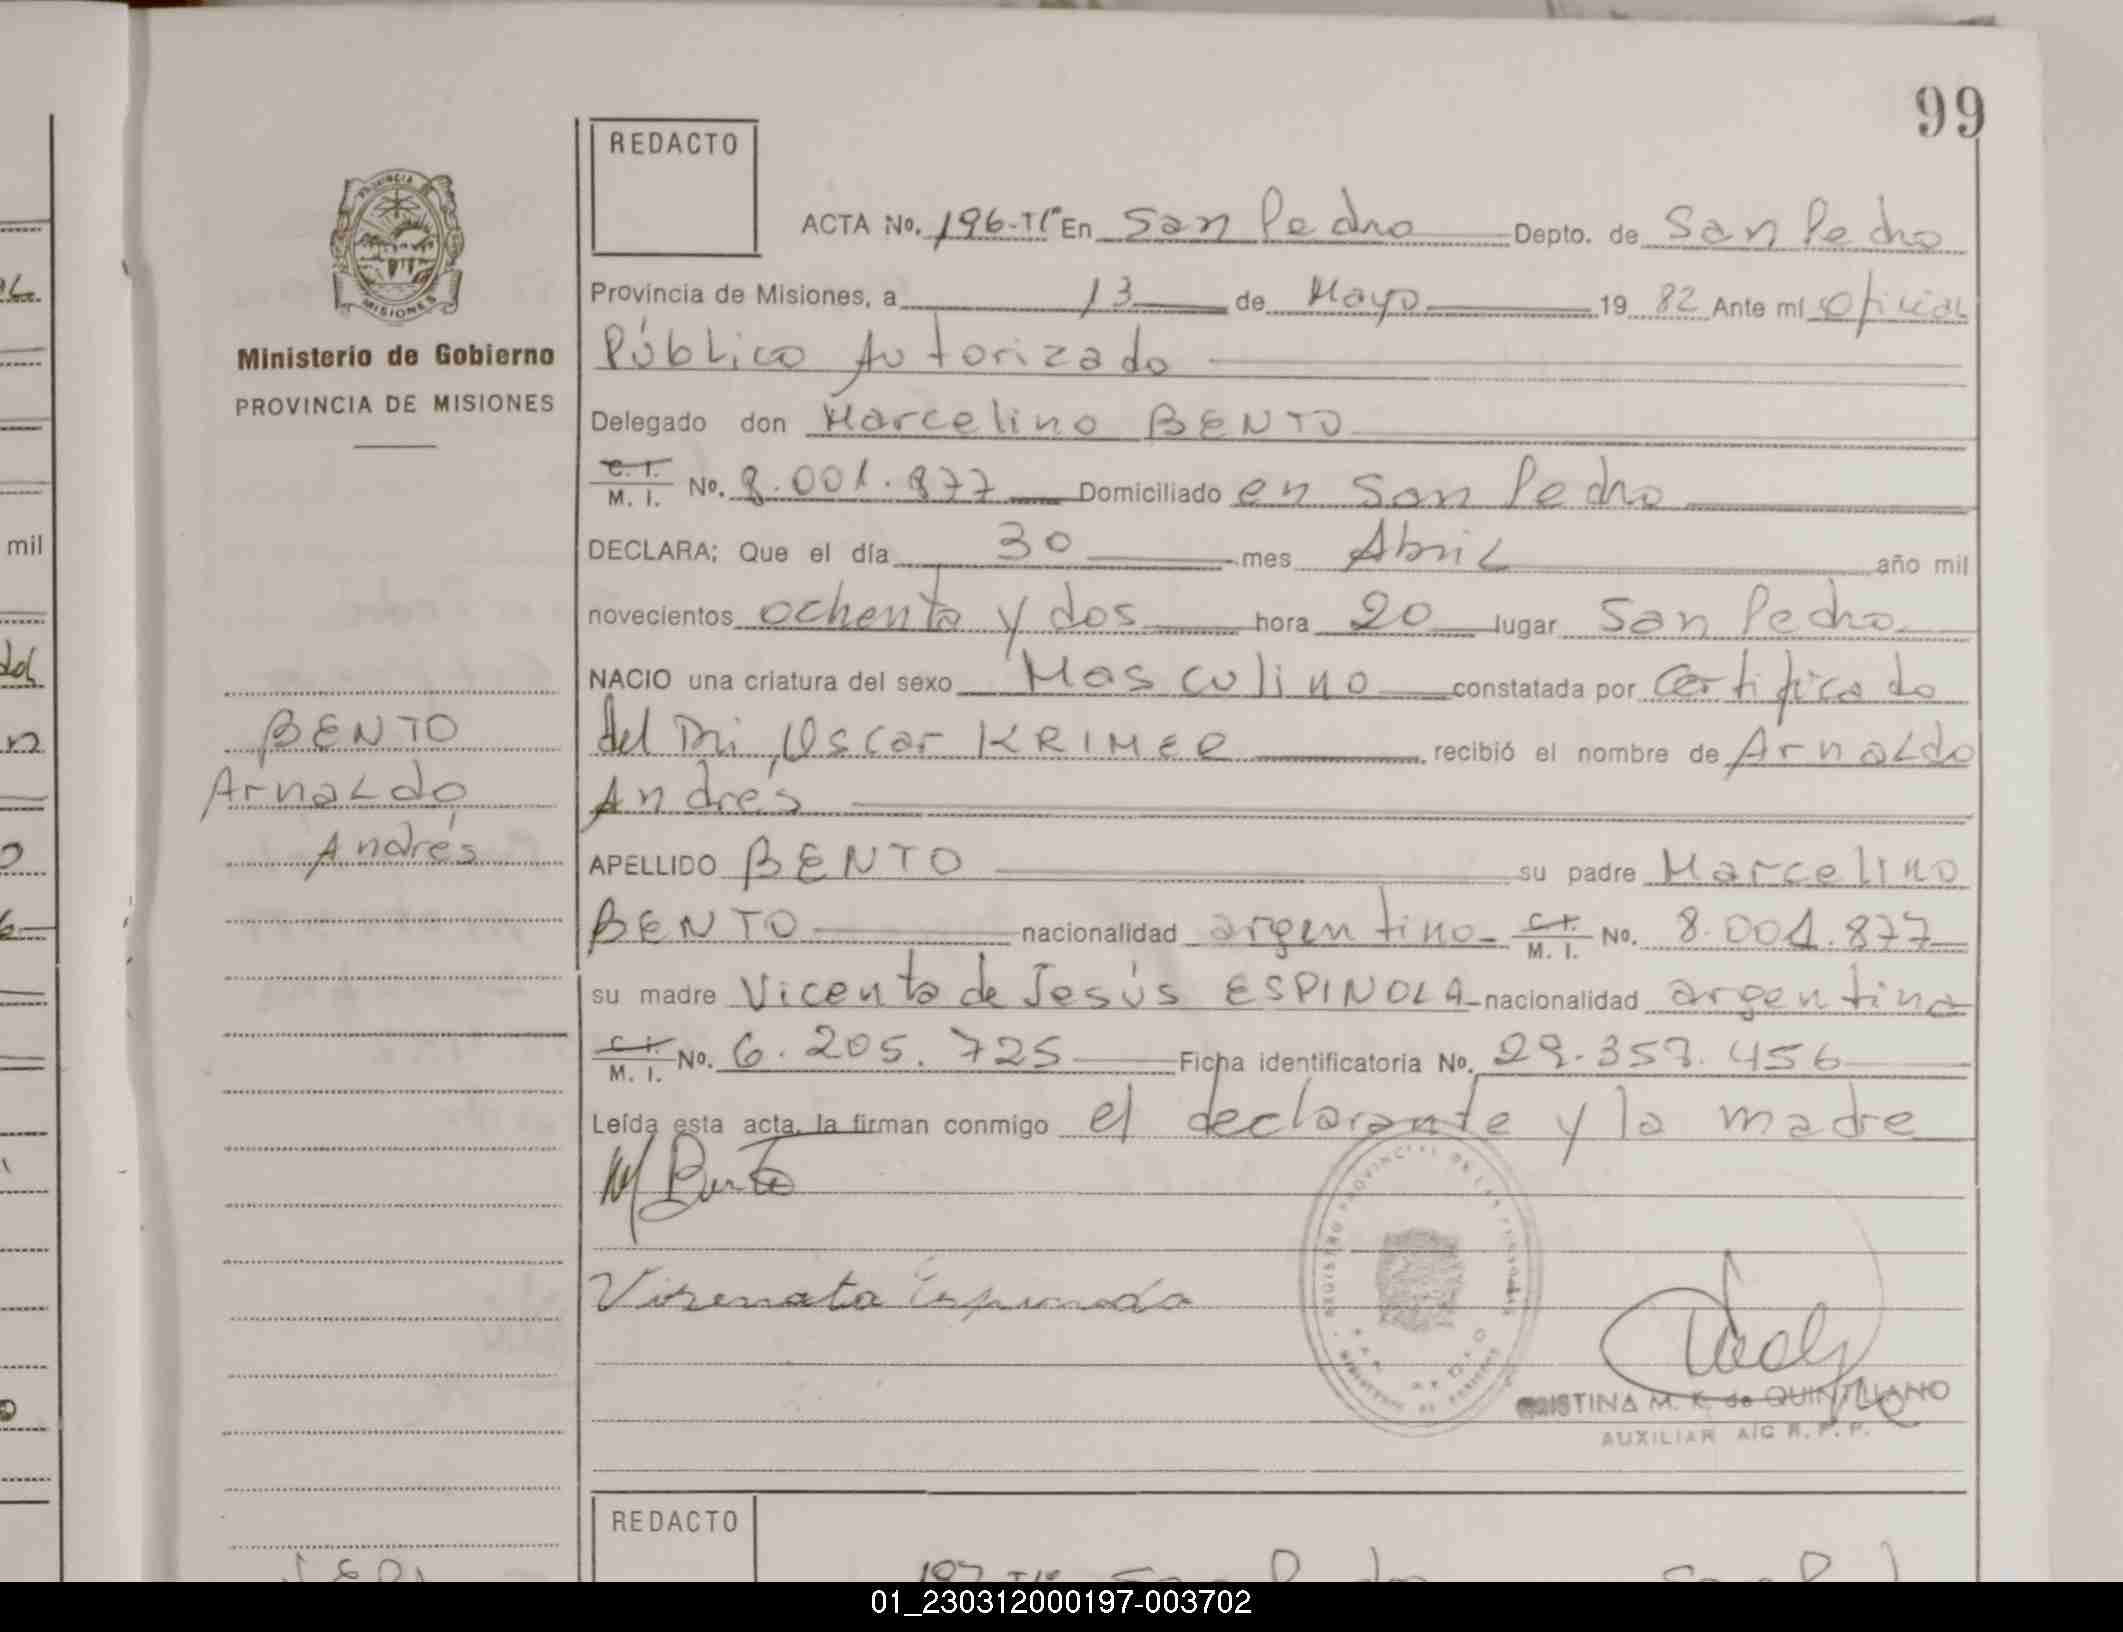 99
REDACTO
ACTA No. 196-Tº En San Pedro Depto. de San Pedro
Provincia de Misiones, a 13 de Mayo 19 82 Ante mí Oficial
Público Autorizado
Delegado don Marcelino BENTO
C. I. M. I. No. 8.001.877 Domiciliado en San Pedro
DECLARA: Que el día 30 mes Abril año mil
novecientos ochenta y dos hora 20 lugar San Pedro
NACIO una criatura del sexo Masculino constatada por Certificado
del Dr. Oscar KRIMER recibió el nombre de Arnaldo
Andrés
APELLIDO BENTO su padre Marcelino
BENTO nacionalidad argentino C. I. M. I. No. 8.001.877
su madre Vicenta de Jesús ESPINOLA nacionalidad argentina
C. I. M. I. No. 6.205.725 Ficha identificatoria No. 29.359.456
Leída esta acta, la firman conmigo el declarante y la madre
M Bento
CRISTINA M. K. de QUINTILIANO
AUXILIAR A/C R. P. P.
PROVINCIA DE
MISIONES
Ministerio de Gobierno
PROVINCIA DE MISIONES
BENTO
Arnaldo
Andrés
mil
REDACTO
01_230312000197-003702